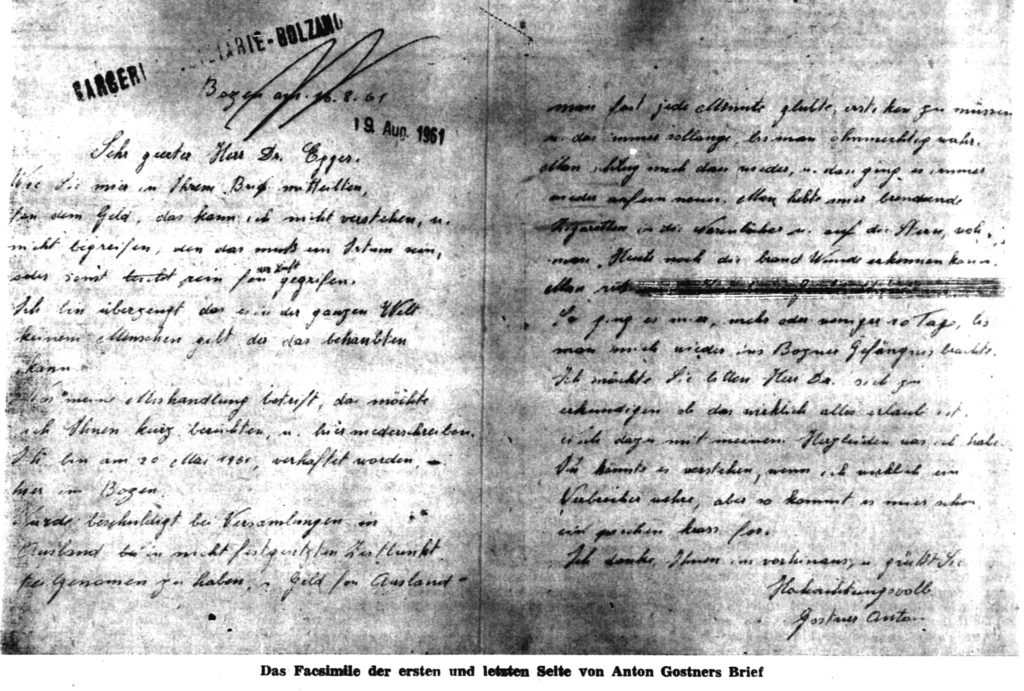 CARCERI GIUDIZIARIE-BOLZANO
Bozen am. 16.8.61
19 Aug. 1961
Sehr geerter Herr Dr. Egger.
Wie Sie mir in Ihrem Brief mitteilten,
fon dem Geld, das kann ich nicht verstehen, u.
nicht begreifen, den das muß ein Irtum sein,
oder sonst rein fon der Luft gegrifen.
Ich bin überzeugt das es in der ganzen Welt
keinem Menschen gibt der das behaubten
kann.
Was meine Mishandlung betrift, das möchte
ich Ihnen kurz berichten, u. hier niederschreiben.
Ich bin am 20 Mai 1961, verhaftet worden,
hier in Bozen.
Wurde beschuldigt bei Versamlungen in
Ausland bei in nicht festgesetzten Zeitpunkt
teilGenomen zu haben, u Geld fon Ausland
man fast jede Menute glubte, erstiken zu müssen
u. das immer sollange, bis man ohnmechtig wahr.
Man schlug mich dan wieder, u. dan ging es immer
wieder anfon neuen. Man hebte mir brendende
Zigaretten in die Nasenlöcher u. auf die Stirn, wo
man Heute noch die brand Wunde erkennen kann.
Man
So ging es mier, mehr oder weniger 10 Tage, bis
man mich wieder ins Bozner Gefängnis brachte.
Ich möchte Sie bitten Herr Dr. sich zu
erkundigen ob das wirklich alles erlaubt ist.
dazu mit meinem Herzleiden was ich habe.
könnte es verstehen, wenn ich wirklich ein
Verbrecher wehre, aber so kommt es mier schon
ein bischen krass for.
Ich danke, Ihnen im vorhinaus, u grüßt Sie
Hochachtungsvoll
Gostner Anton
Das Facsimile der ersten und letzten Seite von Anton Gostners Brief